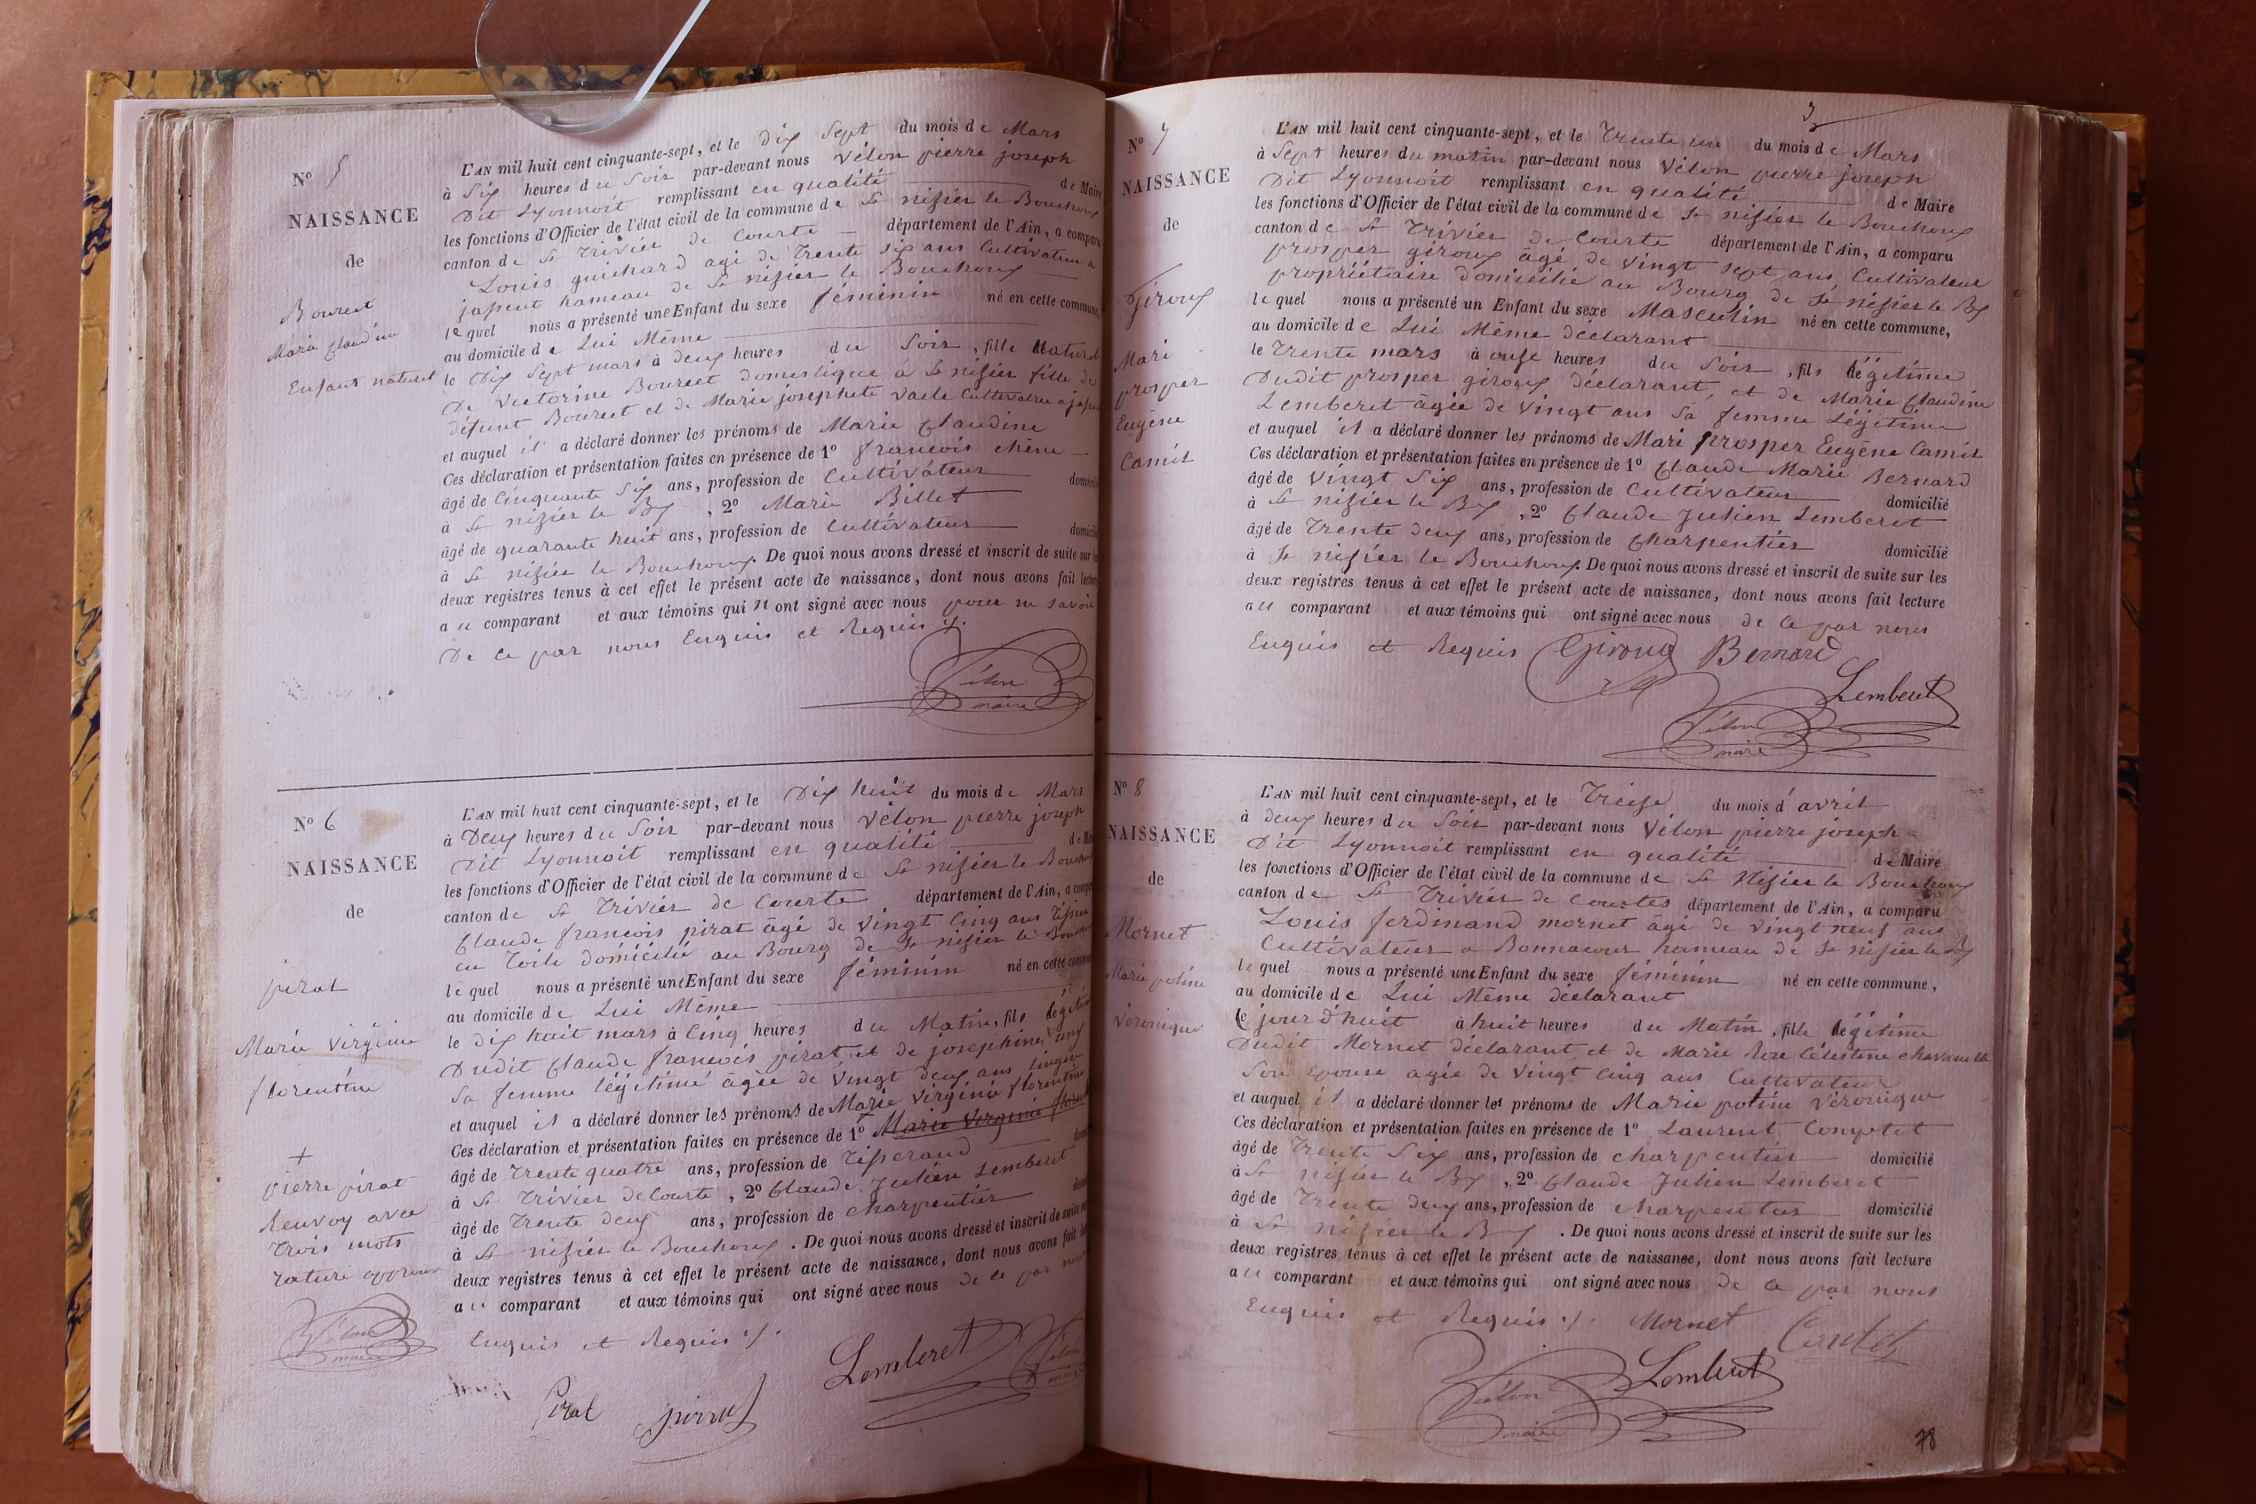 N° 5
NAISSANCE
de
Bourcet
Marie Claudine
Enfant naturel
L'AN mil huit cent cinquante-sept, et le Dix Sept du mois de Mars
à Six heures du Soir par-devant nous Vélon pierre joseph
Dit Lyonnoit remplissant en qualité de Maire
les fonctions d'Officier de l'état civil de la commune de St nizier le Bouchoux
canton de St Trivier de Courte département de l'Ain, a comparu
Louis guichard agé de Trente six ans Cultivateur a
japeut hameau de St nizier le Bouchoux
lequel nous a présenté une Enfant du sexe féminin né en cette commune,
au domicile de Lui Même
le Dix Sept mars à deux heures du Soir, fille Naturel
De Victorine Bourcet domestique a St nizier fille de
défunt Bourcet et de Marie josephete Vaile Cultivatrice a
et auquel il a déclaré donner les prénoms de Marie Claudine
Ces déclaration et présentation faites en présence de 1° francois chêne
âgé de Cinquante Six ans, profession de Cultivateur
à St nizier le Bx, 2° Marie Billet
âgé de quarante huit ans, profession de Cultivateur
à St nizier le Bouchoux. De quoi nous avons dressé et inscrit de suite sur les
deux registres tenus à cet effet le présent acte de naissance, dont nous avons fait lecture
au comparant et aux témoins qui n ont signé avec nous pour ne savoir
De ce par nous Enquis et Requis
Vélon
maire
N° 6
NAISSANCE
de
pirat
Marie Virginie
florentine
+
pierre pirat
Renvoy avec
trois mots
raturé
Vélon
maire
L'AN mil huit cent cinquante-sept, et le Dix huit du mois de Mars
à Deux heures du Soir par-devant nous Vélon pierre joseph
Dit Lyonnoit remplissant en qualité de
les fonctions d'Officier de l'état civil de la commune de St nizier le Bouchoux
canton de St Trivier de Courte département de l'Ain, a comparu
Claude francois pirat âgé de Vingt Cinq ans
en Toile domicilié au Bourg de St nizier le Bouchoux
lequel nous a présenté une Enfant du sexe féminin né en cette commune
au domicile de Lui Même
le dix huit mars à Cinq heures du Matin, fils légitime
Dudit Claude francois pirat, et de josephine
Sa femme légitime âgée de Vingt deux ans lingère
et auquel il a déclaré donner les prénoms de Marie Virginie florentine
Ces déclaration et présentation faites en présence de 1° Marie Virginie
âgé de Trente quatre ans, profession de Tisserand
à St Trivier de Courte, 2° Claude Julien Lemberet
âgé de Trente deux ans, profession de charpentier
à St nizier le Bouchoux. De quoi nous avons dressé et inscrit de suite sur
deux registres tenus à cet effet le présent acte de naissance, dont nous avons fait
au comparant et aux témoins qui ont signé avec nous de ce par nous
Enquis et Requis ./.
Pirat pirrat Lemberet Vélon
3
N° 7
NAISSANCE
de
Giroux
Mari
prosper
Eugène
Camit
L'AN mil huit cent cinquante-sept, et le Trente un du mois de Mars
à Sept heures du matin par-devant nous Vélon pierre joseph
Dit Lyonnoit remplissant en qualité de Maire
les fonctions d'Officier de l'état civil de la commune de St nizier le Bouchoux
canton de St Trivier de Courte département de l'Ain, a comparu
prosper giroux âgé de Vingt sept ans, Cultivateur
propriétaire domicilié au Bourg de St nizier le Bx
lequel nous a présenté un Enfant du sexe Masculin né en cette commune,
au domicile de Lui Même déclarant
le Trente mars à onze heures du Soir, fils légitime
Dudit prosper giroux déclarant, et de Marie Claudine
Lemberet âgée de Vingt ans Sa femme légitime
et auquel il a déclaré donner les prénoms de Mari prosper Eugène Camit
Ces déclaration et présentation faites en présence de 1° Claude Marie Bernard
âgé de Vingt Six ans, profession de Cultivateur domicilié
à St nizier le Bx, 2° Claude Julien Lemberet
âgé de Trente deux ans, profession de Charpentier domicilié
à St nizier le Bouchoux. De quoi nous avons dressé et inscrit de suite sur les
deux registres tenus à cet effet le présent acte de naissance, dont nous avons fait lecture
au comparant et aux témoins qui ont signé avec nous de ce par nous
Enquis et Requis Giroux Bernard
Lemberet
Vélon
maire
N° 8
NAISSANCE
de
Mornet
Marie poline
Véronique
L'AN mil huit cent cinquante-sept, et le Treize du mois d'avril
à deux heures du Soir par-devant nous Vélon pierre joseph
Dit Lyonnoit remplissant en qualité de Maire
les fonctions d'Officier de l'état civil de la commune de St Nizier le Bouchoux
canton de St Trivier de Courtes département de l'Ain, a comparu
Louis ferdinand mornet âgé de vingt neuf ans
Cultivateur a Bonnacour hameau de St nizier le Bx
lequel nous a présenté une Enfant du sexe féminin né en cette commune,
au domicile de Lui Même déclarant
Ce jour d'huit à huit heures du Matin, fille légitime
Dudit Mornet déclarant et de Marie Rose Célestine
Son epouse agée de Vingt Cinq ans Cultivateur
et auquel il a déclaré donner les prénoms de Marie poline Véronique
Ces déclaration et présentation faites en présence de 1° Laurent Comptet
âgé de Trente Six ans, profession de charpentier domicilié
à St nizier le Bx, 2° Claude Julien Lemberet
âgé de Trente deux ans, profession de charpentier domicilié
à St nizier le Bx. De quoi nous avons dressé et inscrit de suite sur les
deux registres tenus à cet effet le présent acte de naissance, dont nous avons fait lecture
au comparant et aux témoins qui ont signé avec nous de ce par nous
Enquis et Requis ./. Mornet
Lemberet
Vélon
maire
78